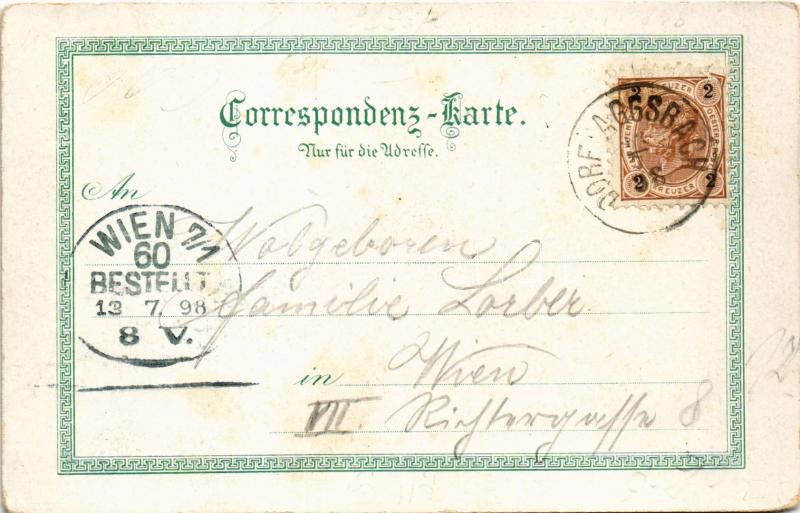 Correspondenz-Karte.
Nur für die Adresse.
2 KREUZER 2
2 KREUZER 2
DORF AGGSBACH
An
WIEN 7/1
60
BESTELLT
13 7. 98
8 V.
Wolgeboren
Familie Lorber
in Wien
VII. Richtergasse 8